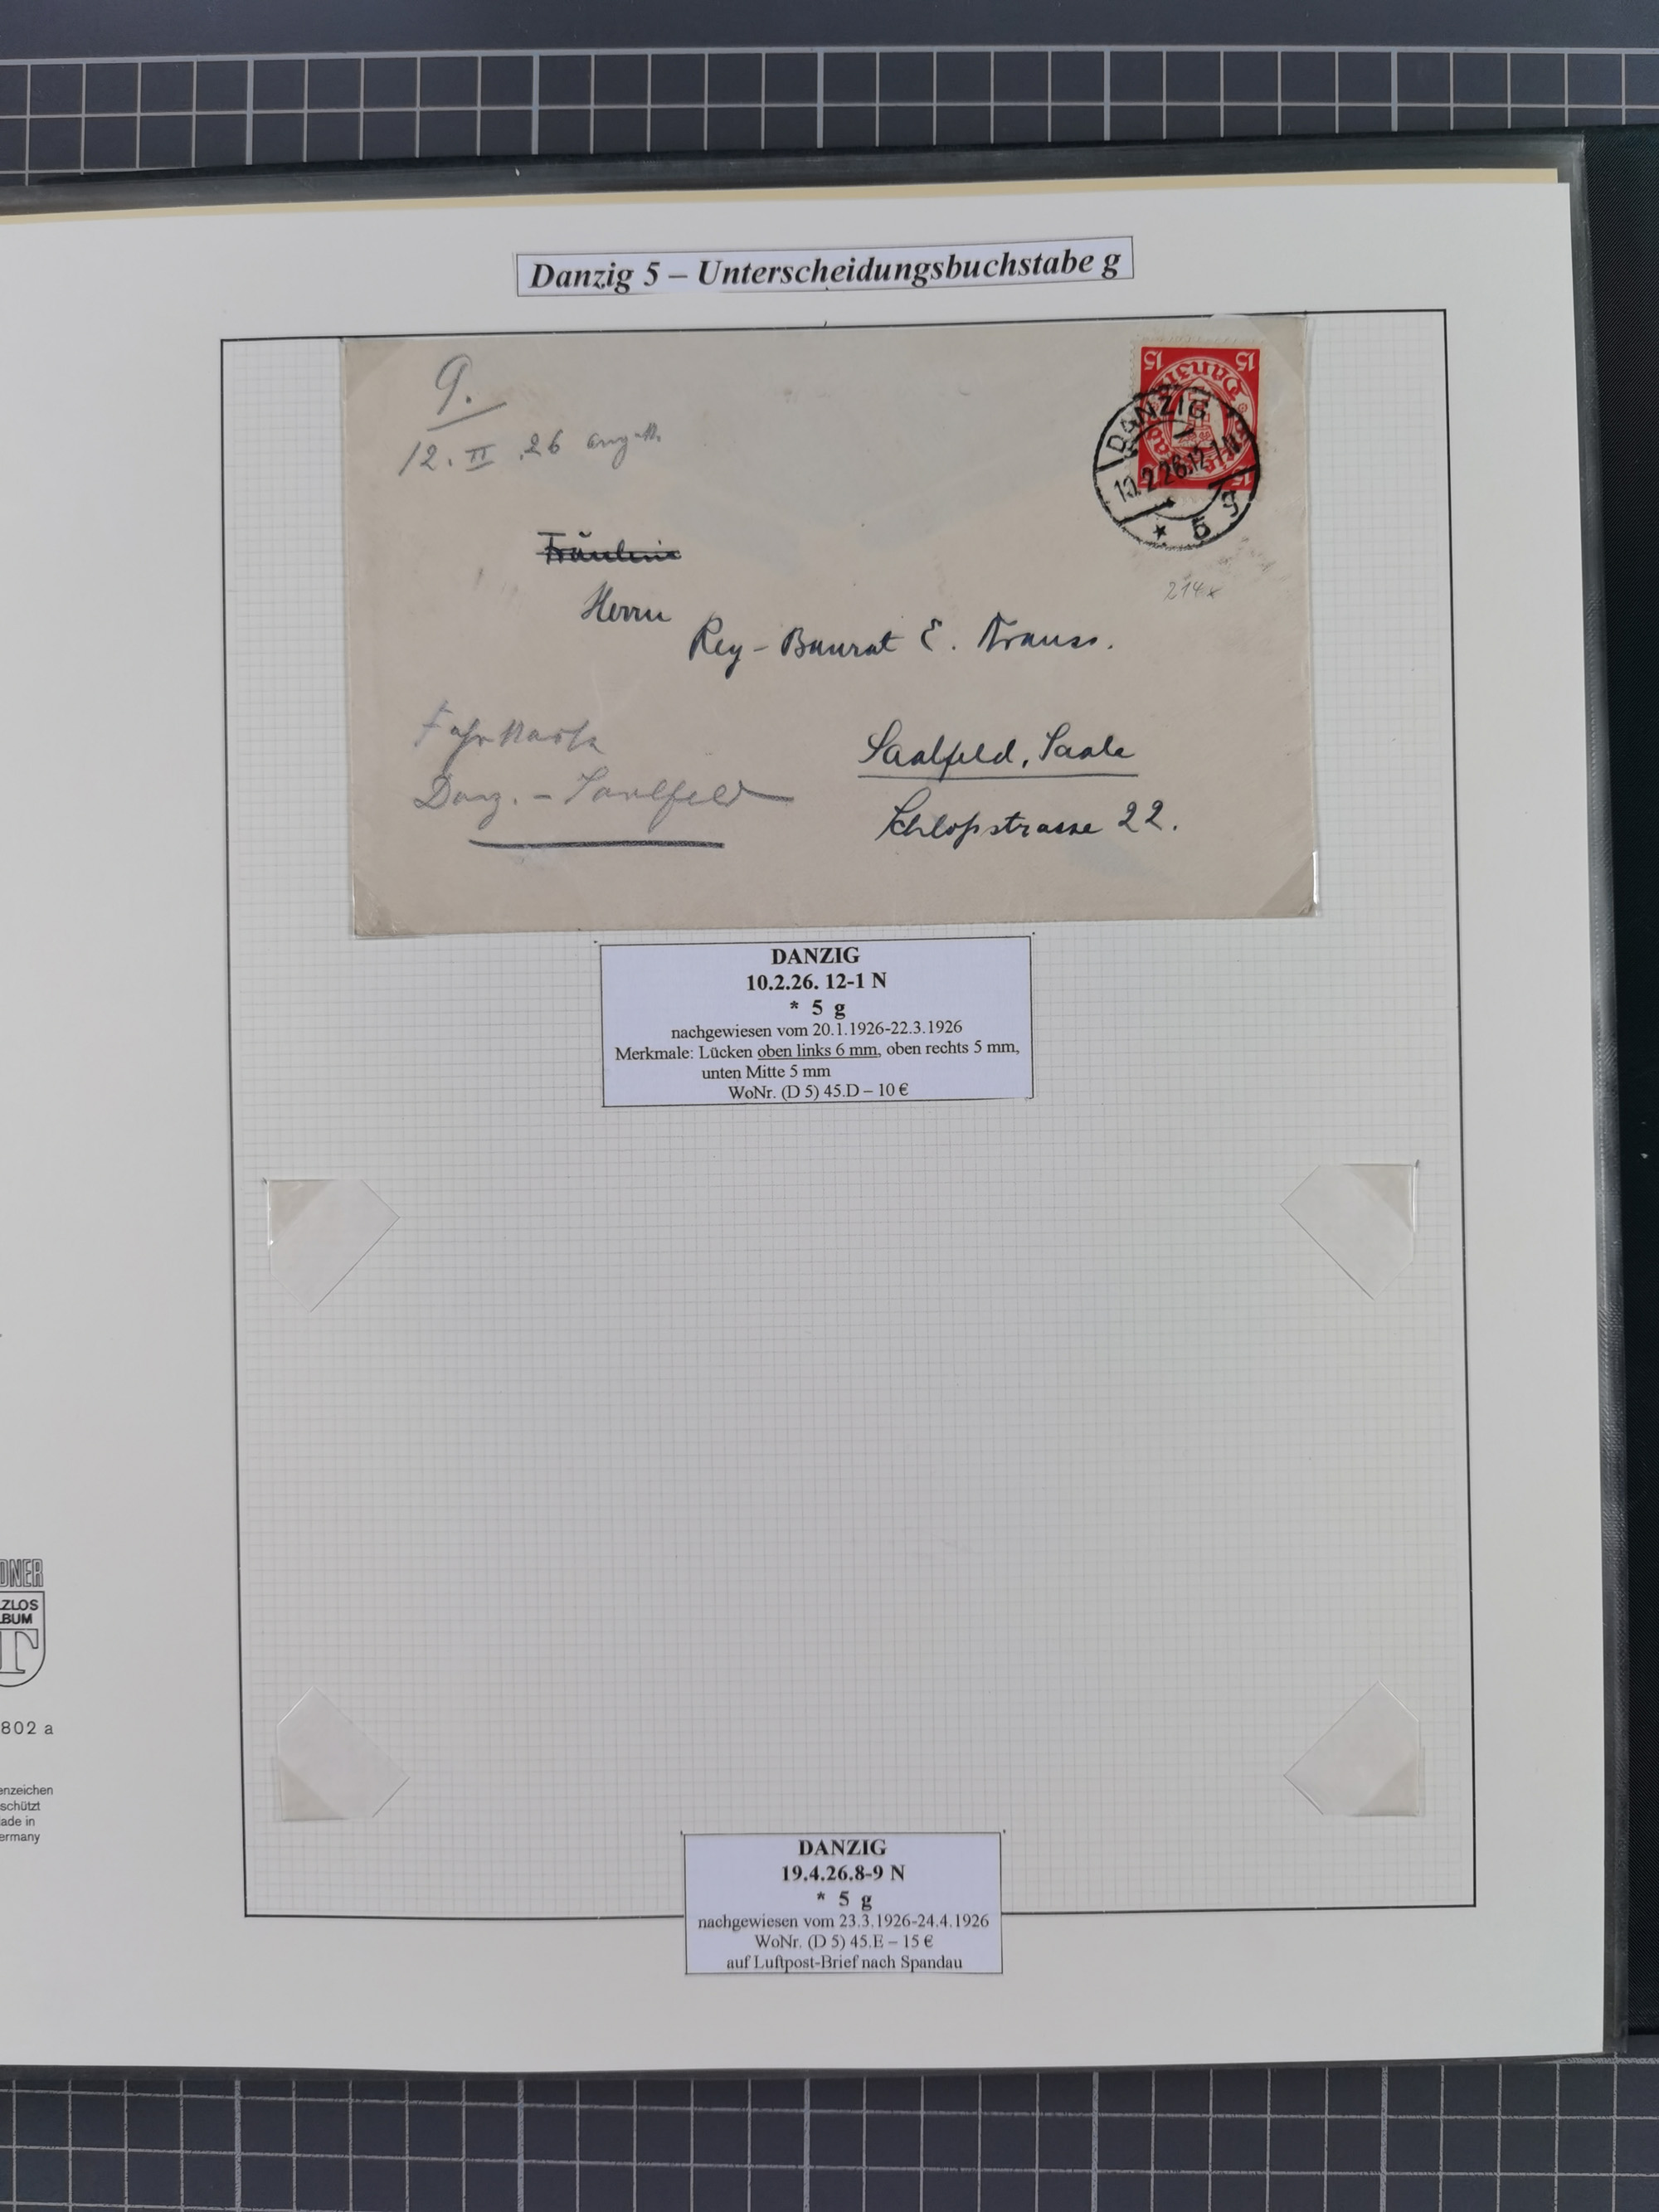 Danzig 5 – Unterscheidungsbuchstabe g
9.
12. II .26
15 15
Danzig
DANZIG
10.2.26.12-1 N
* 5 g
214x
Fräulein
Herrn
Reg-Baurat E. Krauss.
Fahrkarte
Danz. – Saalfeld
Saalfeld, Saale
Schloßstrasse 22.
DANZIG
10.2.26. 12-1 N
* 5 g
nachgewiesen vom 20.1.1926-22.3.1926
Merkmale: Lücken oben links 6 mm, oben rechts 5 mm,
unten Mitte 5 mm
WoNr. (D 5) 45.D – 10 €
DNER
ZLOS
BUM
T
802 a
enzeichen
schützt
ade in
ermany
DANZIG
19.4.26.8-9 N
* 5 g
nachgewiesen vom 23.3.1926-24.4.1926
WoNr. (D 5) 45.E – 15 €
auf Luftpost-Brief nach Spandau